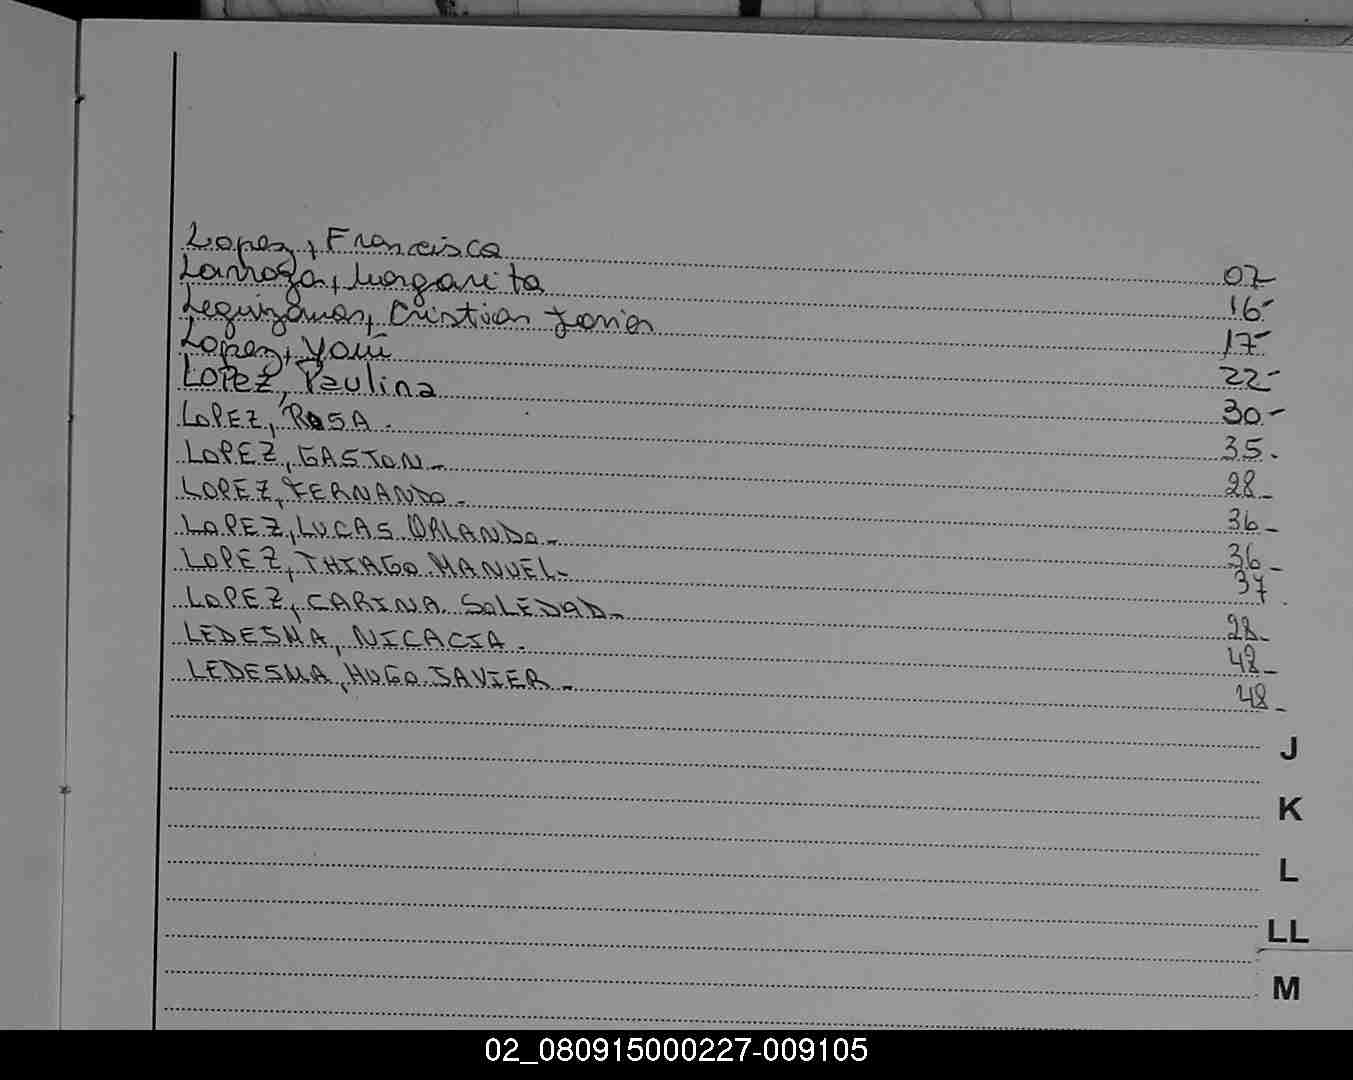 Lopez, Francisca 07
Larroza, Margarita 16-
Leguizamon, Cristian Javier 17-
Lopez, Yani 22-
Lopez, Paulina 30-
LOPEZ, ROSA. 35.
LOPEZ, GASTON- 28-
LOPEZ, FERNANDO- 36-
LOPEZ, LUCAS ORLANDO- 36-
LOPEZ, THIAGO MANUEL- 37.
LOPEZ, CARINA SOLEDAD- 28-
LEDESMA, NICACIA. 48-
LEDESMA, HUGO JAVIER- 48-
J
K
L
LL
M
02_080915000227-009105